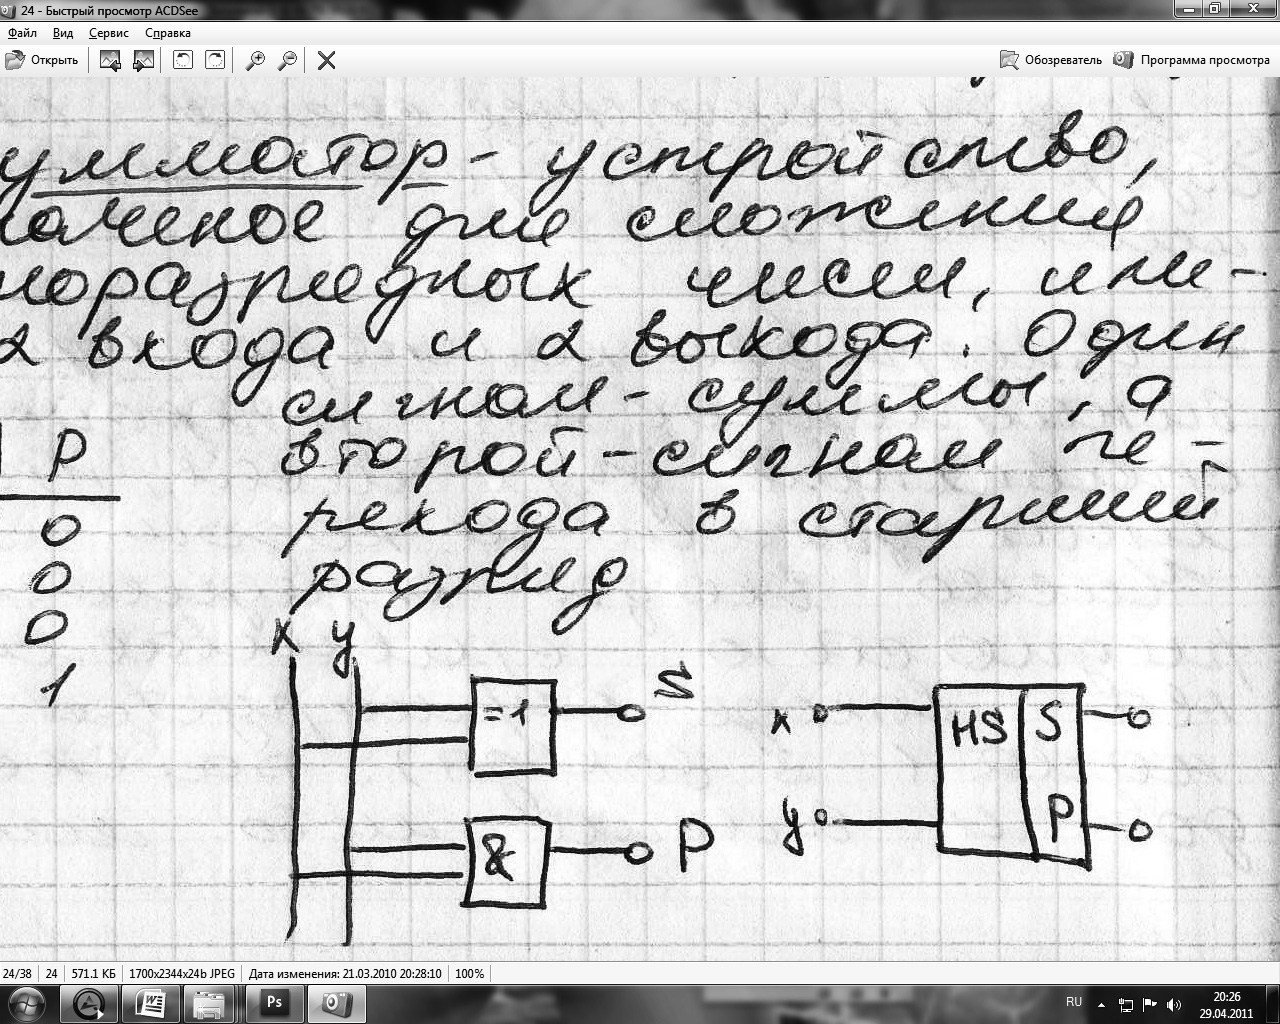 24 - Быстрый просмотр ACDSee
Файл Вид Сервис Справка
Открыть Обозреватель Программа просмотра
умматор - устройство,
наченое для сложения
норазрядных чисел, име-
2 входа и 2 выхода. Один
сигнал - суммы, а
P второй - сигнал пе-
0 рехода в старший
0 разряд
0 x y
1 S
=1
x HS S
y P
& P
24/38 24 571.1 КБ 1700x2344x24b JPEG Дата изменения: 21.03.2010 20:28:10 100%
Ps RU 20:26
29.04.2011